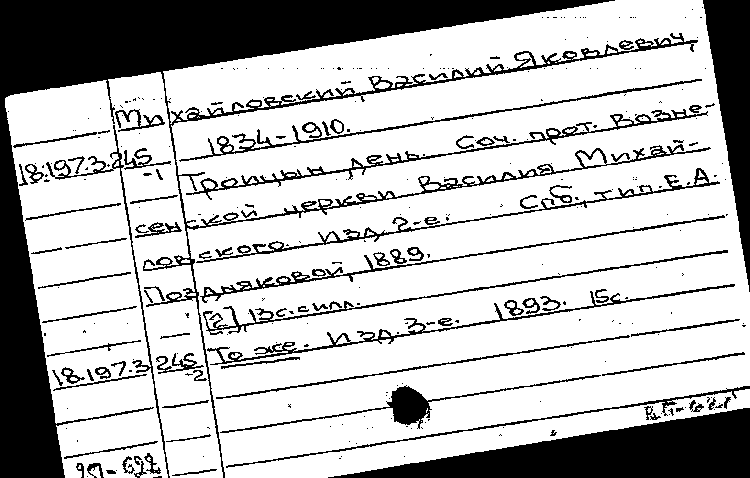 Михайловский, Василий Яковлевич,
1834-1910.
18.197.3.245-1
Троицын день. Соч. прот. Возне-
сенской церкви Василия Михай-
ловского. Изд. 2-е. Спб., тип. Е.А.
Поздняковой, 1889.
[2], 13с. с илл.
18.197.3.245-2
То же. Изд. 3-е. 1893. 15с.